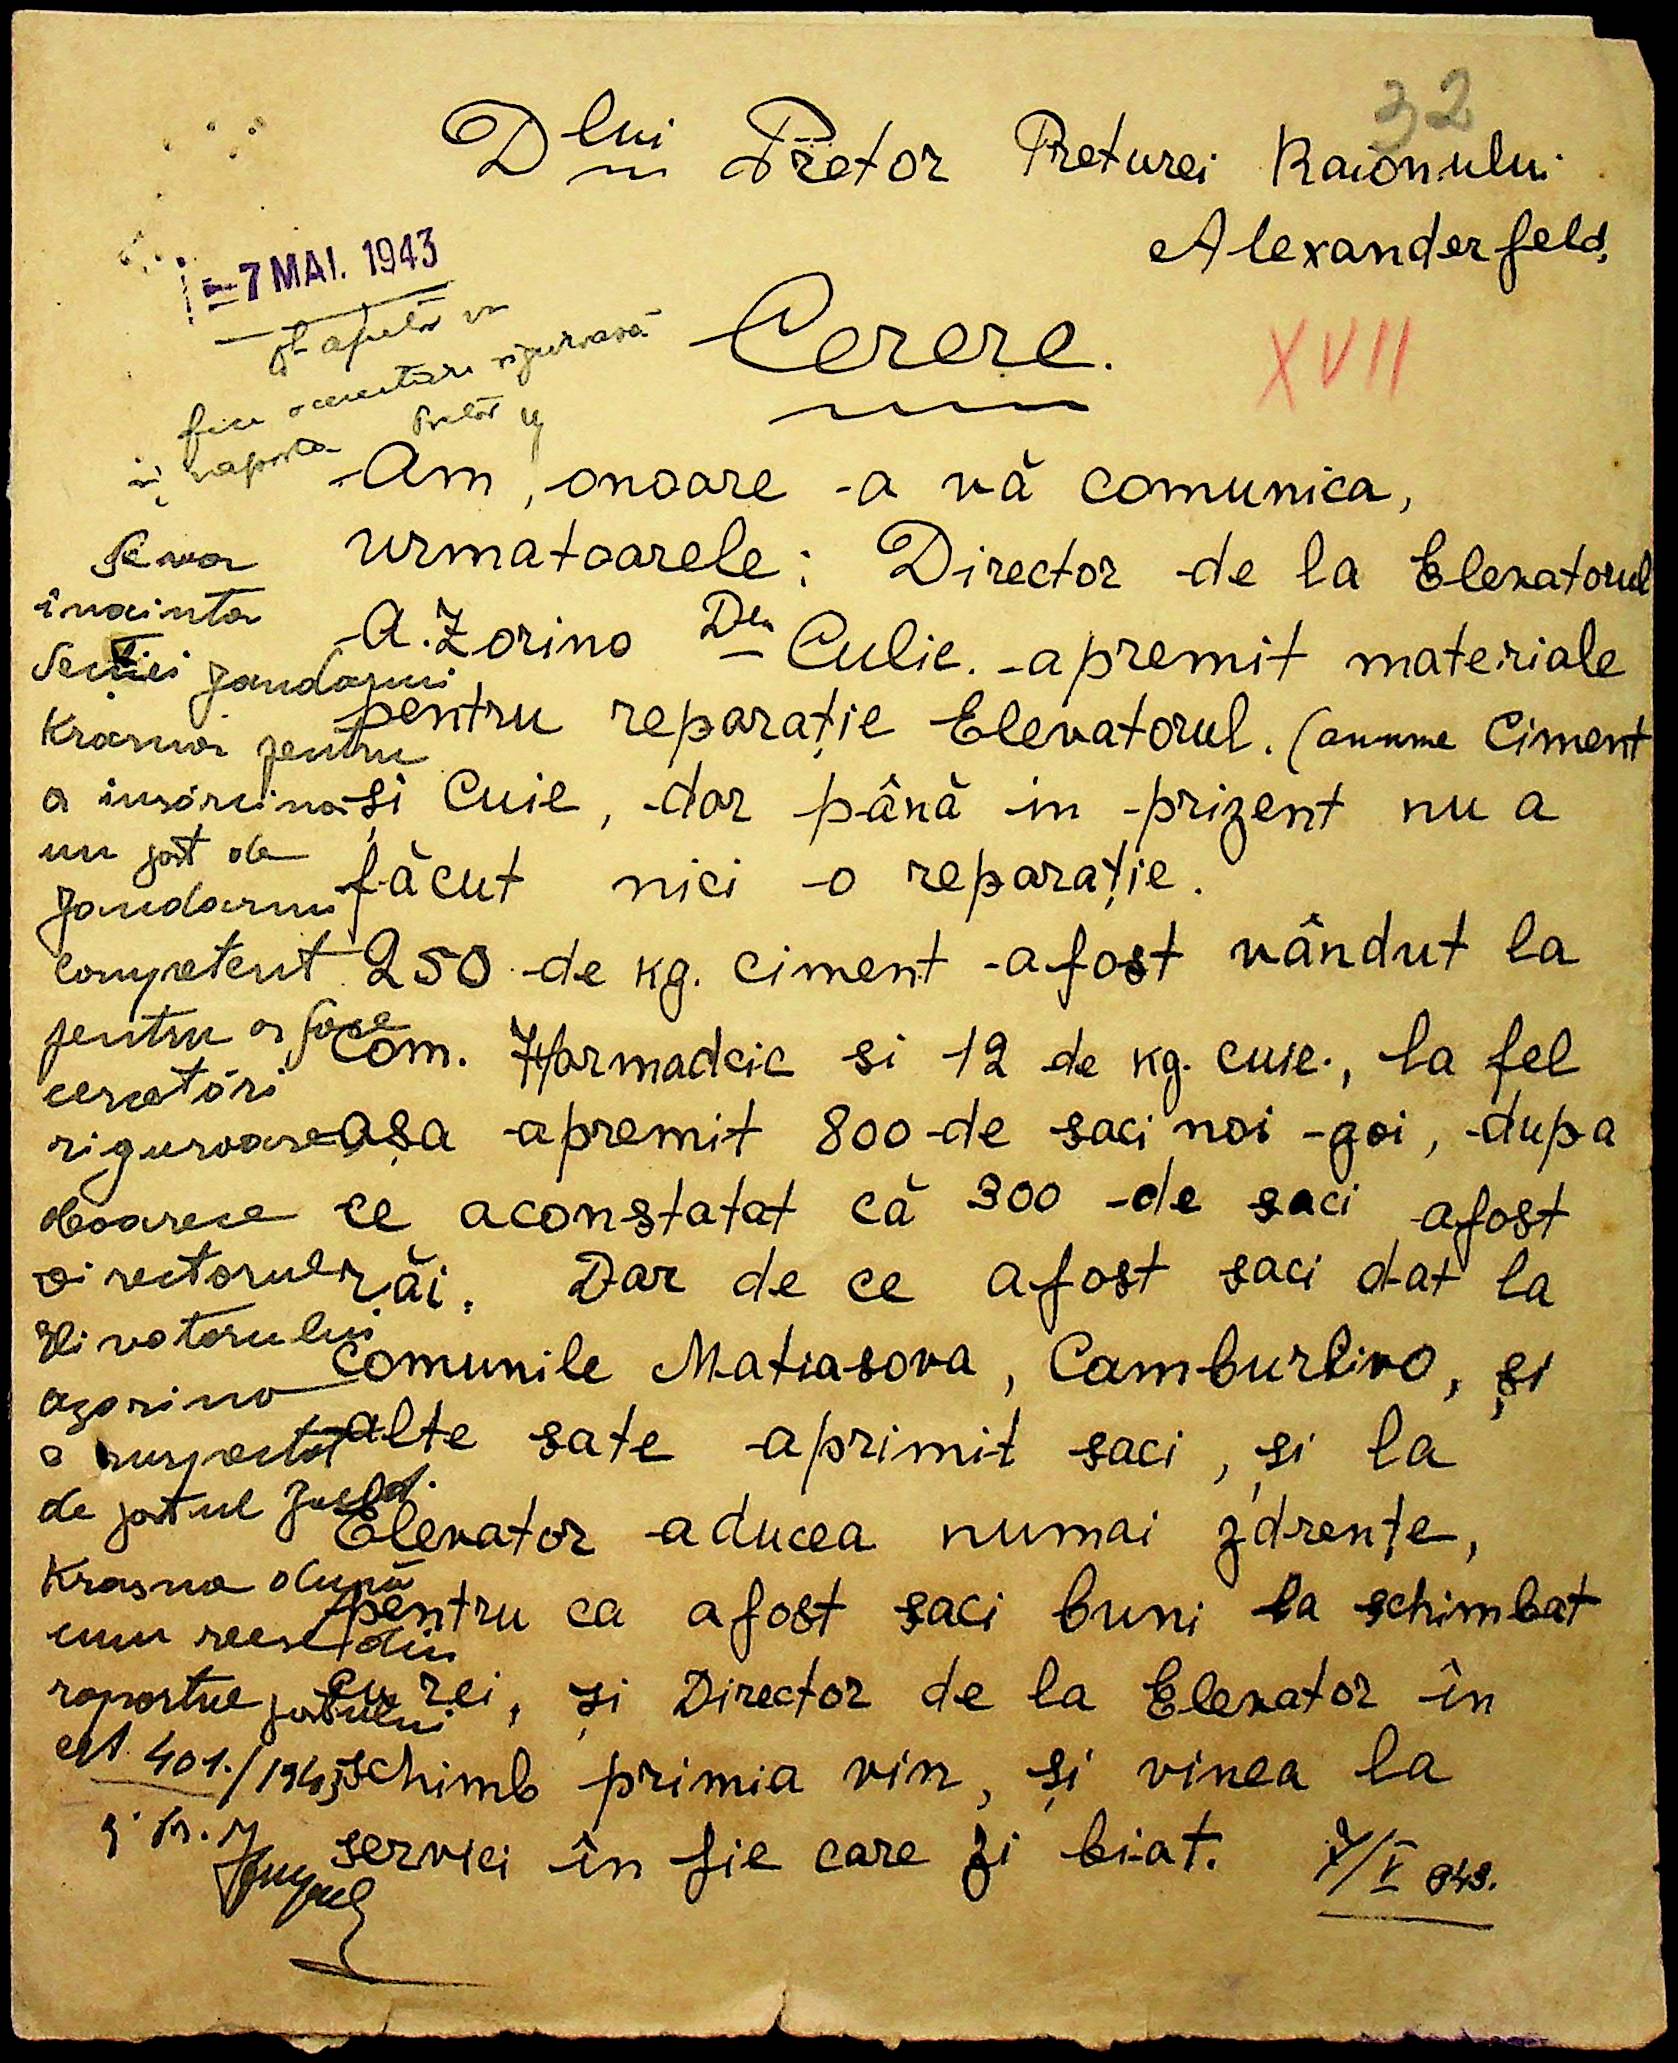 32
Dlui Pretor Preturei Raionului
Alexanderfeld,
- 7 MAI. 1943
Cerere.
XVII
Am, onoare a vă comunica,
urmatoarele: Director de la Elevatorul
A. Zorino Dln Culic. a premit materiale
pentru reparație Elevatorul. (anume Ciment
și Cuie, dar până in prizent nu a
făcut nici o reparație.
250 de kg. ciment a fost vândut la
Com. Harmadcic si 12 de kg. cuie., la fel
așa a premit 800 de saci noi goi, dupa
ce aconstatat că 300 de saci afost
răi. Dar de ce afost saci dat la
comunile Matiasova, Camburlivo, și
alte sate aprimit saci, și la
Elevator aducea numai zdrențe,
pentru ca afost saci buni la schimbat
cu rei, și Director de la Elevator în
schimb primia vin, și vinea la
servici în fie care zi biat. 7/V 943.
Se va
înainta
Secției Jandarmi
Krasna pentru
a insărcina
un post de
Jandarmi
competent
pentru a face
cercetări
riguroase
deoarece
directorul
Elivatorului
azorino
e suspectat
de postul Jand.
Krasna după
cum reese din
raportul postului
401./1943